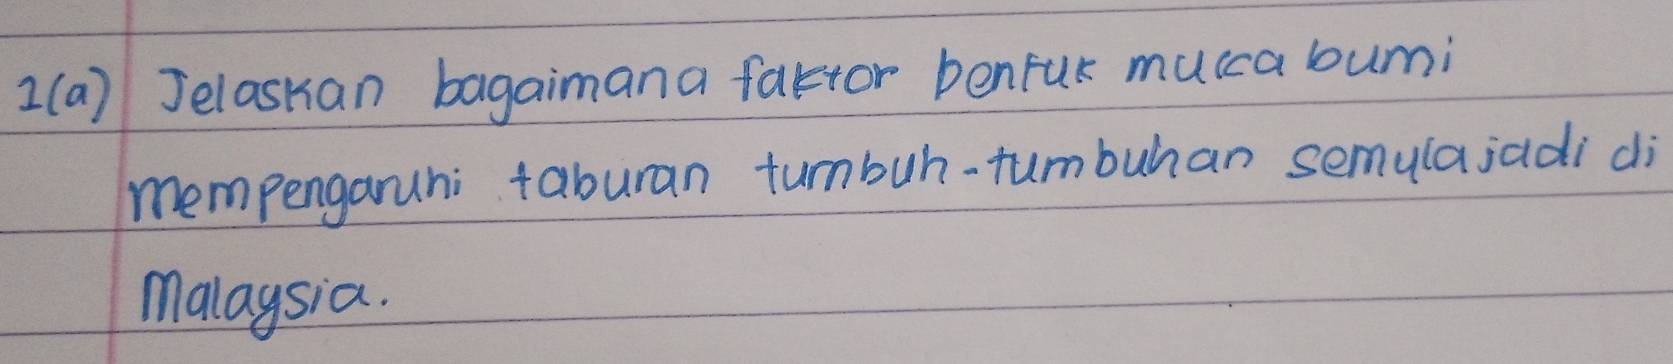 1(a) Jelaskan bagaimana faktor bentuk muka bumi
mempengaruhi taburan tumbuh-tumbuhan semulajadi di
Malaysia.